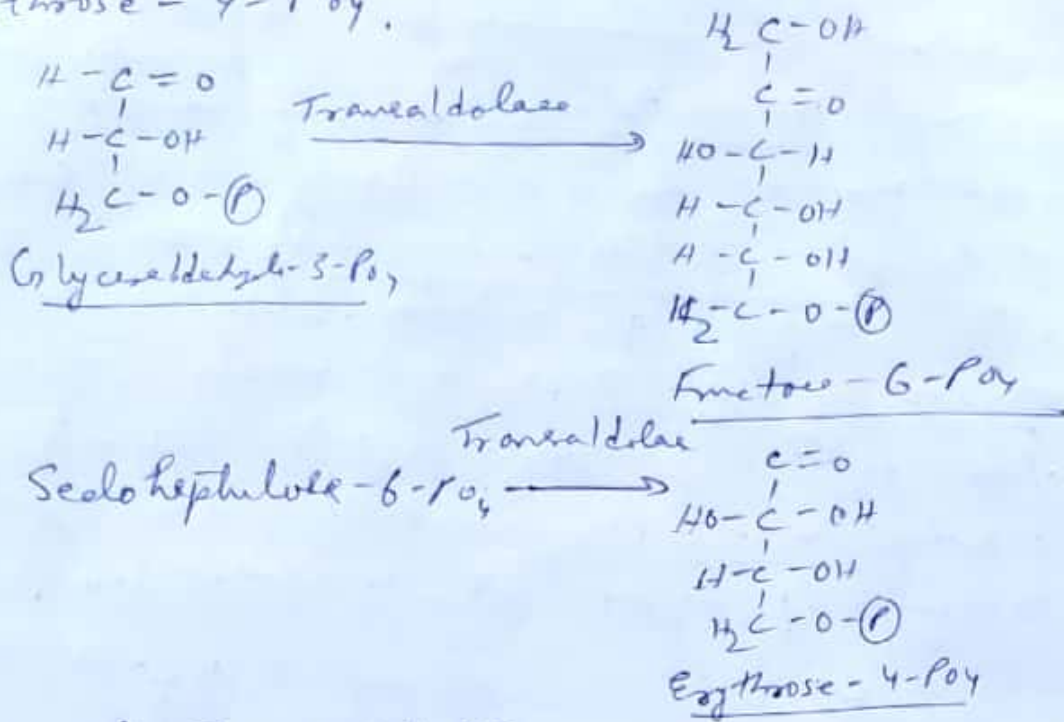 throse - 4 - PO4.
H - C = O
H - C - OH
H2 C - O - P
Transaldolase
Glyceraldehyde-3-PO4
H2 C - OH
C = O
HO - C - H
H - C - OH
H - C - OH
H2 - C - O - P
Fructose - 6 - PO4
Sedoheptulose - 6 - PO4
Transaldolase
C = O
HO - C - OH
H - C - OH
H2 C - O - P
Erythrose - 4 - PO4